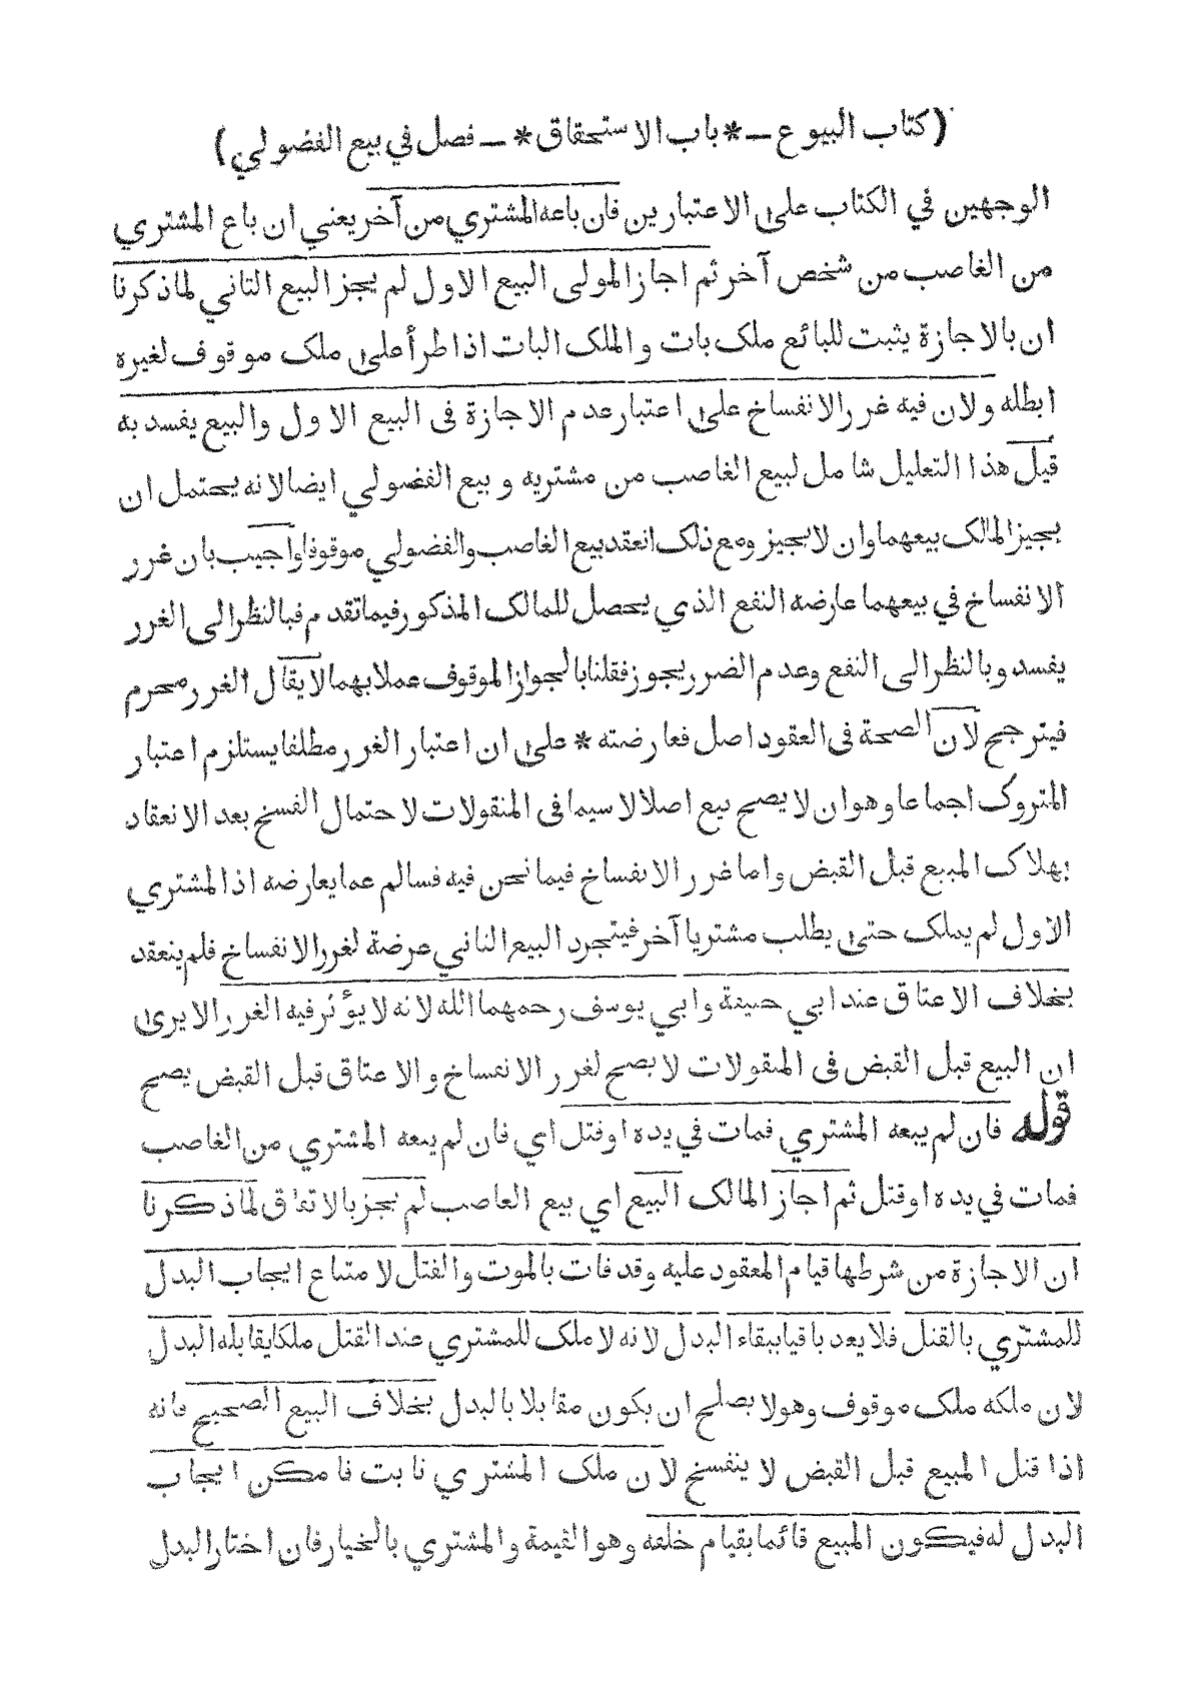 (كتاب البيوع ـ * باب الاستحقاق * ـ فصل في بيع الفضولي)
الوجهين في الكتاب على الاعتبارين فان باعه المشتري من آخر يعني ان باع المشتري
من الغاصب من شخص آخر ثم اجاز المولى البيع الاول لم يجز البيع الثاني لما ذكرنا
ان بالاجازة يثبت للبائع ملك بات والملك البات اذا طرأ على ملك موقوف لغيره
ابطله ولان فيه غرر الانفساخ على اعتبار عدم الاجازة فى البيع الاول والبيع يفسد به
قيل هذا التعليل شامل لبيع الغاصب من مشتريه وبيع الفضولي ايضا لانه يحتمل ان
يجيز المالك بيعهما وان لا يجيز ومع ذلك انعقد بيع الغاصب والفضولي موقوفا واجيب بان غرر
الانفساخ في بيعهما عارضه النفع الذي يحصل للمالك المذكور فيما تقدم فبالنظر الى الغرر
يفسد وبالنظر الى النفع وعدم الضرر يجوز فقلنا بالجواز الموقوف عملا بهما لا يقال الغرر محرم
فيترجح لان الصحة فى العقود اصل فعارضته * على ان اعتبار الغرر مطلقا يستلزم اعتبار
المتروك اجماعا وهو ان لا يصح بيع اصلا لا سيما فى المنقولات لاحتمال الفسخ بعد الانعقاد
بهلاك المبيع قبل القبض واما غرر الانفساخ فيما نحن فيه فسالم عما يعارضه اذا المشتري
الاول لم يملك حتى يطلب مشتريا آخر فيتجرد البيع الثاني عرضة لغرر الانفساخ فلم ينعقد
بخلاف الاعتاق عند ابي حنيفة وابي يوسف رحمهما الله لانه لا يؤثر فيه الغرر الا يرى
ان البيع قبل القبض فى المنقولات لا يصح لغرر الانفساخ والاعتاق قبل القبض يصح
قوله فان لم يبعه المشتري فمات في يده او قتل اي فان لم يبعه المشتري من الغاصب
فمات في يده او قتل ثم اجاز المالك البيع اي بيع الغاصب لم يجز بالاتفاق لما ذكرنا
ان الاجازة من شرطها قيام المعقود عليه وقد فات بالموت والقتل لامتناع ايجاب البدل
للمشتري بالقتل فلا يعد باقيا ببقاء البدل لانه لا ملك للمشتري عند القتل ملكا يقابله البدل
لان ملكه ملك موقوف وهو لا يصلح ان يكون مقابلا بالبدل بخلاف البيع الصحيح فانه
اذا قتل المبيع قبل القبض لا ينفسخ لان ملك المشتري ثابت فامكن ايجاب
البدل له فيكون المبيع قائما بقيام خلفه وهو القيمة والمشتري بالخيار فان اختار البدل